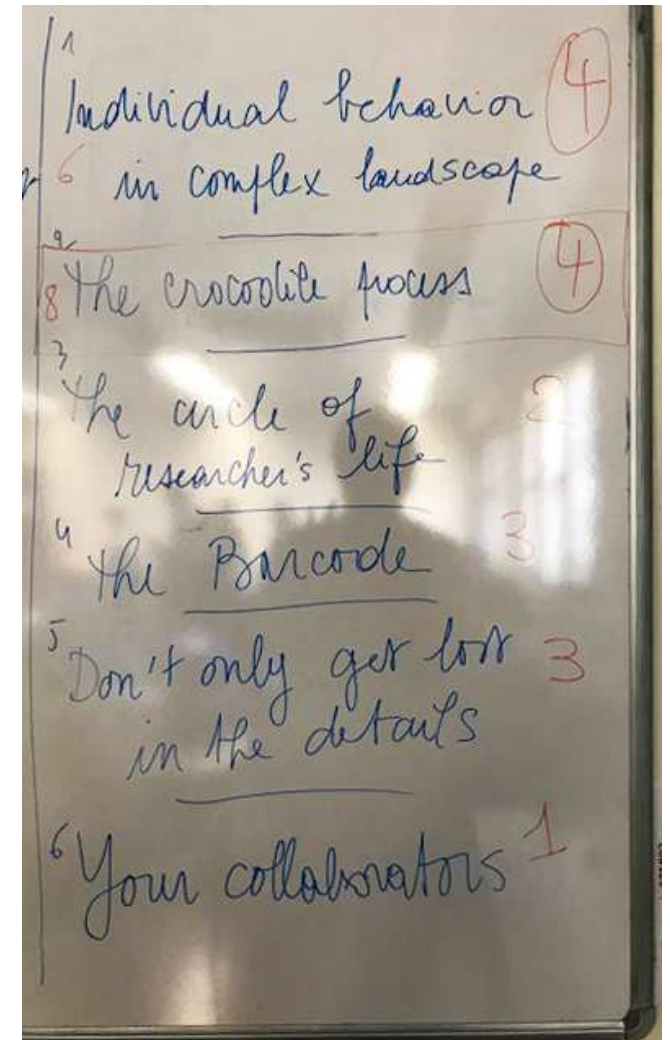 1
Individual behavior 4
6 in complex landscape
2
8 The crocodile process 4
3
The circle of 2
researcher's life
4 The Barcode 3
5
Don't only get lost 3
in the details
6 Your collaborators 1